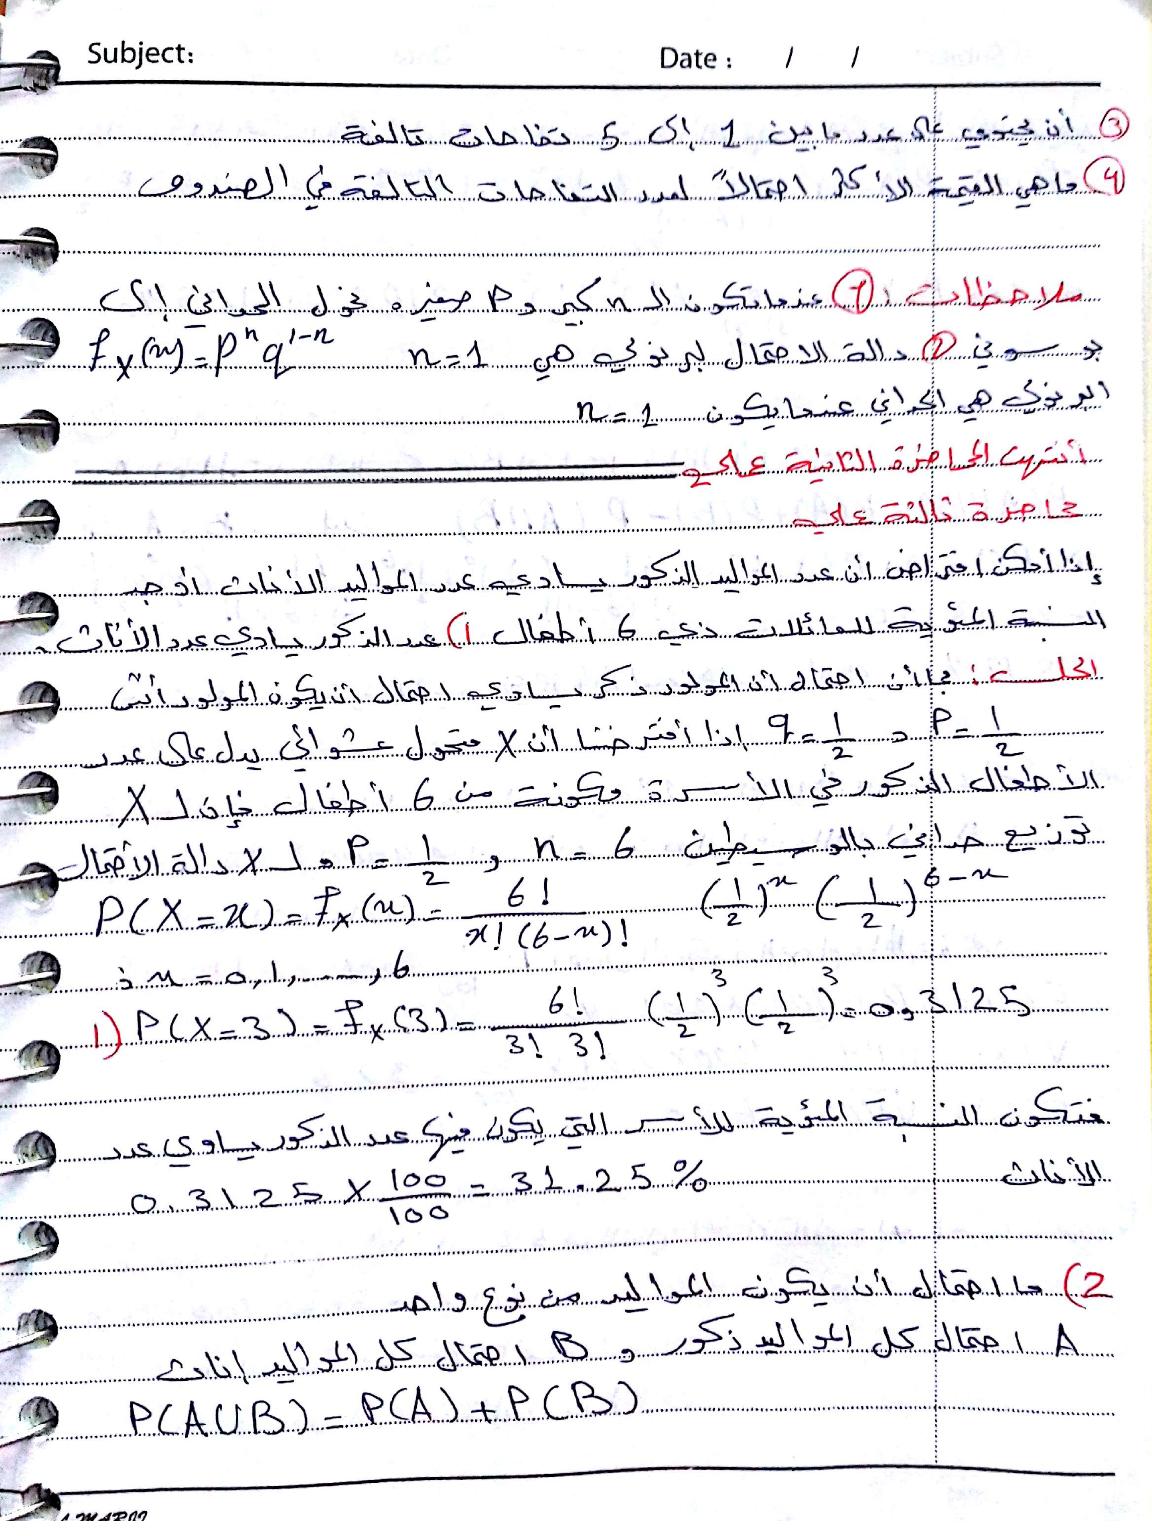 Subject: Date : / /
③ أن يحتوي على عدد ما بين 1 إلى 5 تفاحات تالفة
④ ما هي القيمة الأكثر احتمالاً لعدد التفاحات التالفة في الصندوق
ملاحظات : ① عندما تكون الـ n كبير و P صغيره نحول الحداني إلى
بوسوني ② دالة الاحتمال لبرنولي هي n=1 f_X(x) = P^x q^{1-x}
البرنولي هي الحداني عندما يكون n = 1
أنتهت المحاضرة الثانية عملي
محاضرة ثالثة عملي
إذا أمكن افتراض أن عدد المواليد الذكور يساوي عدد المواليد الأناث أوجد
النسبة المئوية للعائلات ذي 6 أطفال 1) عدد الذكور يساوي عدد الأناث
الحل : بما أن احتمال أن المولود ذكر يساوي احتمال أن يكون المولود أنثى
P = 1/2 و q = 1/2 إذا أفترضنا أن X متحول عشوائي يدل على عدد
الأطفال الذكور في الأسرة مكونة من 6 أطفال فإن لـ X
توزيع حداني بالوسيطين n = 6 و P = 1/2 و لـ X دالة الأحتمال
P(X = x) = f_X(x) = 6! / x! (6-x)! (1/2)^x (1/2)^{6-x}
; x = 0, 1, ..., 6
1) P(X=3) = f_X(3) = 6! / 3! 3! (1/2)^3 (1/2)^3 = 0,3125
فتكون النسبة المئوية للأسر التي يكون فيها عدد الذكور يساوي عدد
الأناث 0.3125 × 100/100 = 31.25 %
2) ما احتمال أن يكون المواليد من نوع واحد
A احتمال كل المواليد ذكور و B احتمال كل المواليد إناث
P(A∪B) = P(A) + P(B)